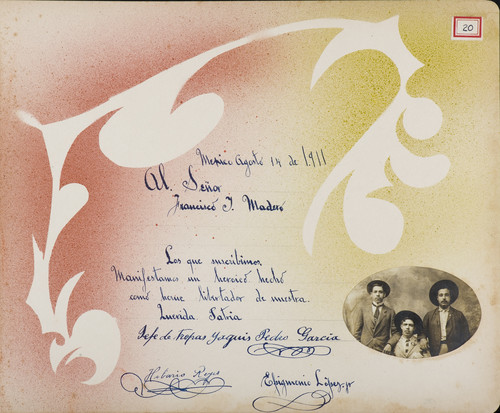 20
Mexico Agosto 14 de 1911
Al Señor
Francisco I. Madero
Los que suscribimos
Manifestamos un heroico hecho
como heroe libertador de nuestra
Querida Patria
Jefe de tropas Yaquis Pedro Garcia
Hilario Reyes
Epigmenio López jr